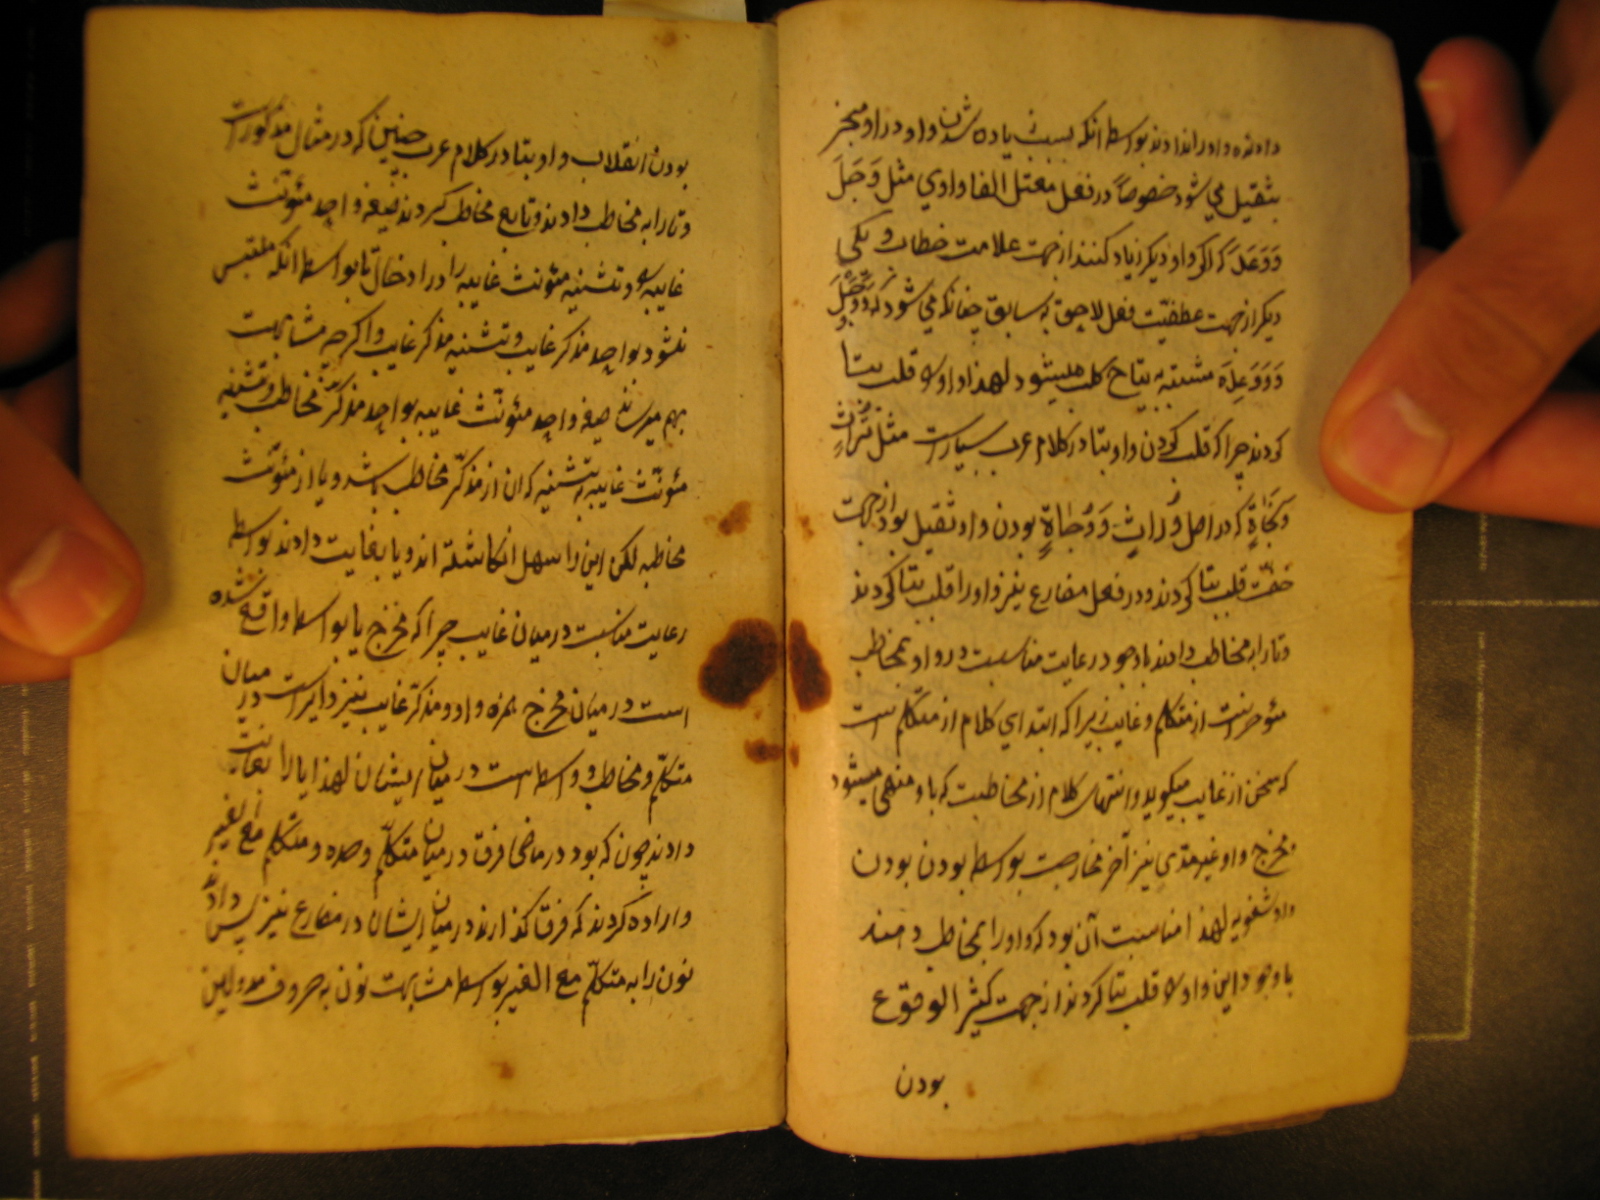 دادند و واو را ندادند بواسطه انکه بسبب زیاده شدن واو در او منجر
بثقیل می شود خصوصاً در فعل معتل الفا واوی مثل وَجَلَ
وَوَعَدَ که اکر واو دیکر زیاد کنند از جهت علامت خطاب و یکی
دیکر از جهت عطفیّت فعل لاحق به سابق چنانکه می شود که وَوَوْجَلَ
مشتبه به نباح کلب میشود لهذا واو را قلب بتا
کردند چرا که قلب کردن واو بتا در کلام عرب بسیار است مثل تُراثٍ
وَتُجَاةٍ که در اصل وُرَاثٍ وَوُجَاةٍ بودن واو ثقیل بود از جهت
خفّت قلب بتا کردند و در فعل مضارع نیز واو را قلب بتا کردند
و تا را به مخاطب دادند با وجود رعایت مناسبت در واو بمخاطب
مئوخر است از متکلم و غایب زیرا که ابتدای کلام از متکلم است
که سخن از غایب میکوید و انتهای کلام از مخاطبست که باو منتهی میشود
مخرج واو غیر مدی نیز آخر مخارجست بواسطه بودن بودن
واو شفویه لهذا مناسبت آن بود که واو را بمخاطب دهند
با وجود این واو را قلب بتا کردند از جهت کثیر الوقوع
بودن
بودن انقلاب واو بتا در کلام عرب چنین که در مثال مذکور است
و تا را به مخاطب دادند و تابع مخاطب کردند صیغه واحد مئونث
غایبه و تثنیه مئونث غایبه را در ادخال تا بواسطه انکه ملتبس
نشود بواحد مذکر غایب و تثنیه مذکر غایب و اکر چه مشابهت
بهم میرسانند صیغه واحد مئونث غایبه بواحد مذکر مخاطب و تثنیه
مئونث غایبه به تثنیه که ان از مذکر مخاطب باشد و یا از مئونث
مخاطبه لکن این را سهل انکاشته اند و یا بغایت دادند بواسطه
رعایت مناسبت در میان غایب چرا که مخرج یا بواسطه واقع شده
است در میان مخرج همزه و واو و مذکر غایب نیز دایر است در میان
متکلم و مخاطب و واسطه است در میان ایشان لهذا یا را بغایب
دادند چون که بود در ماضی فرق در میان متکلم وحده و متکلم مع الغیر
و اراده کردند که فرق کذارند در میان ایشان در مضارع نیز پس دادند
نون را به متکلم مع الغیر بواسطه مشابهت نون به حروف مد و لین